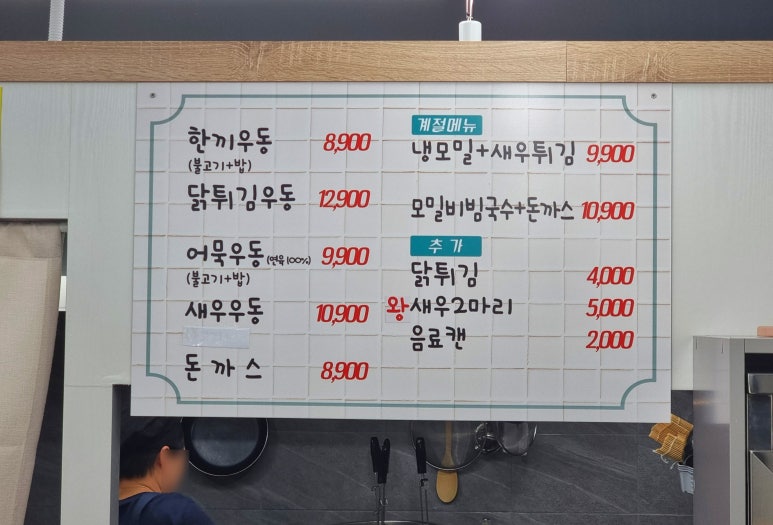 한끼우동 8,900
(불고기+밥)
닭튀김우동 12,900
어묵우동(연육100%) 9,900
(불고기+밥)
새우우동 10,900
돈까스 8,900
계절메뉴
냉모밀+새우튀김 9,900
모밀비빔국수+돈까스 10,900
추가
닭튀김 4,000
왕새우2마리 5,000
음료캔 2,000